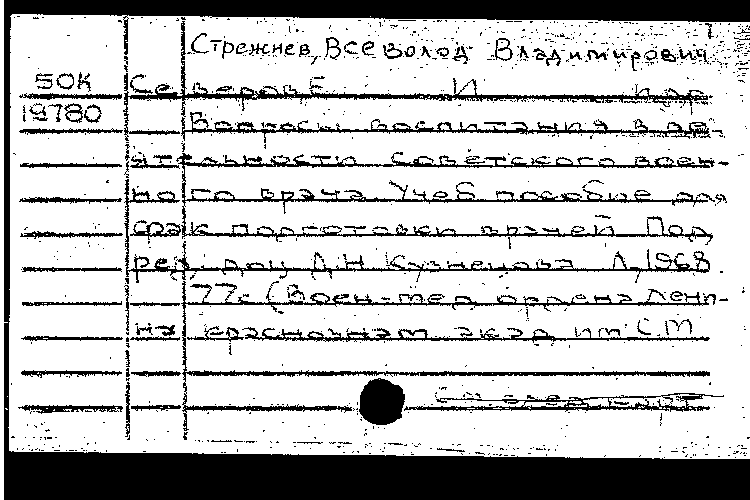 Стрежнев, Всеволод Владимирович
50К Северов Е И и др
19780 Вопросы воспитания в де-
ятельности советского воен-
ного врача. Учеб пособие для
фак подготовки врачей Под
ред. доц Д.Н Кузнецова Л, 1968.
77с (Воен-мед ордена Лени-
на краснознам акад им С.М
См. след карт